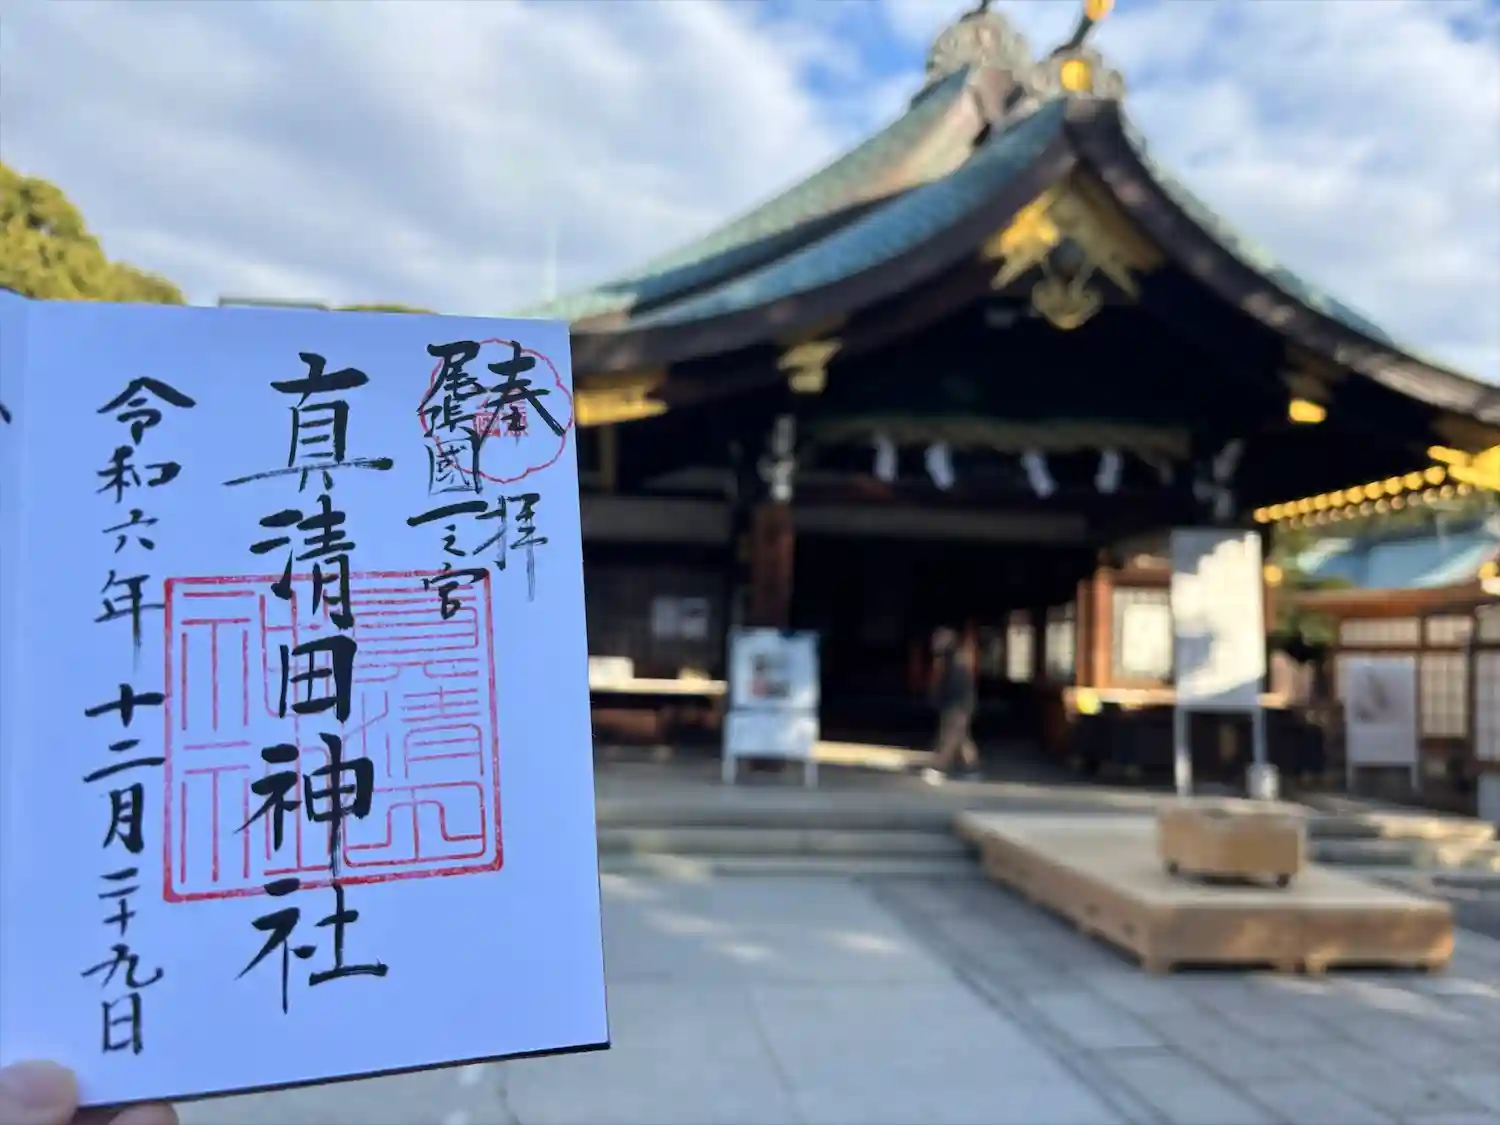 奉拝
尾張國一之宮
真清田神社
令和六年十二月二十九日
真清田神社